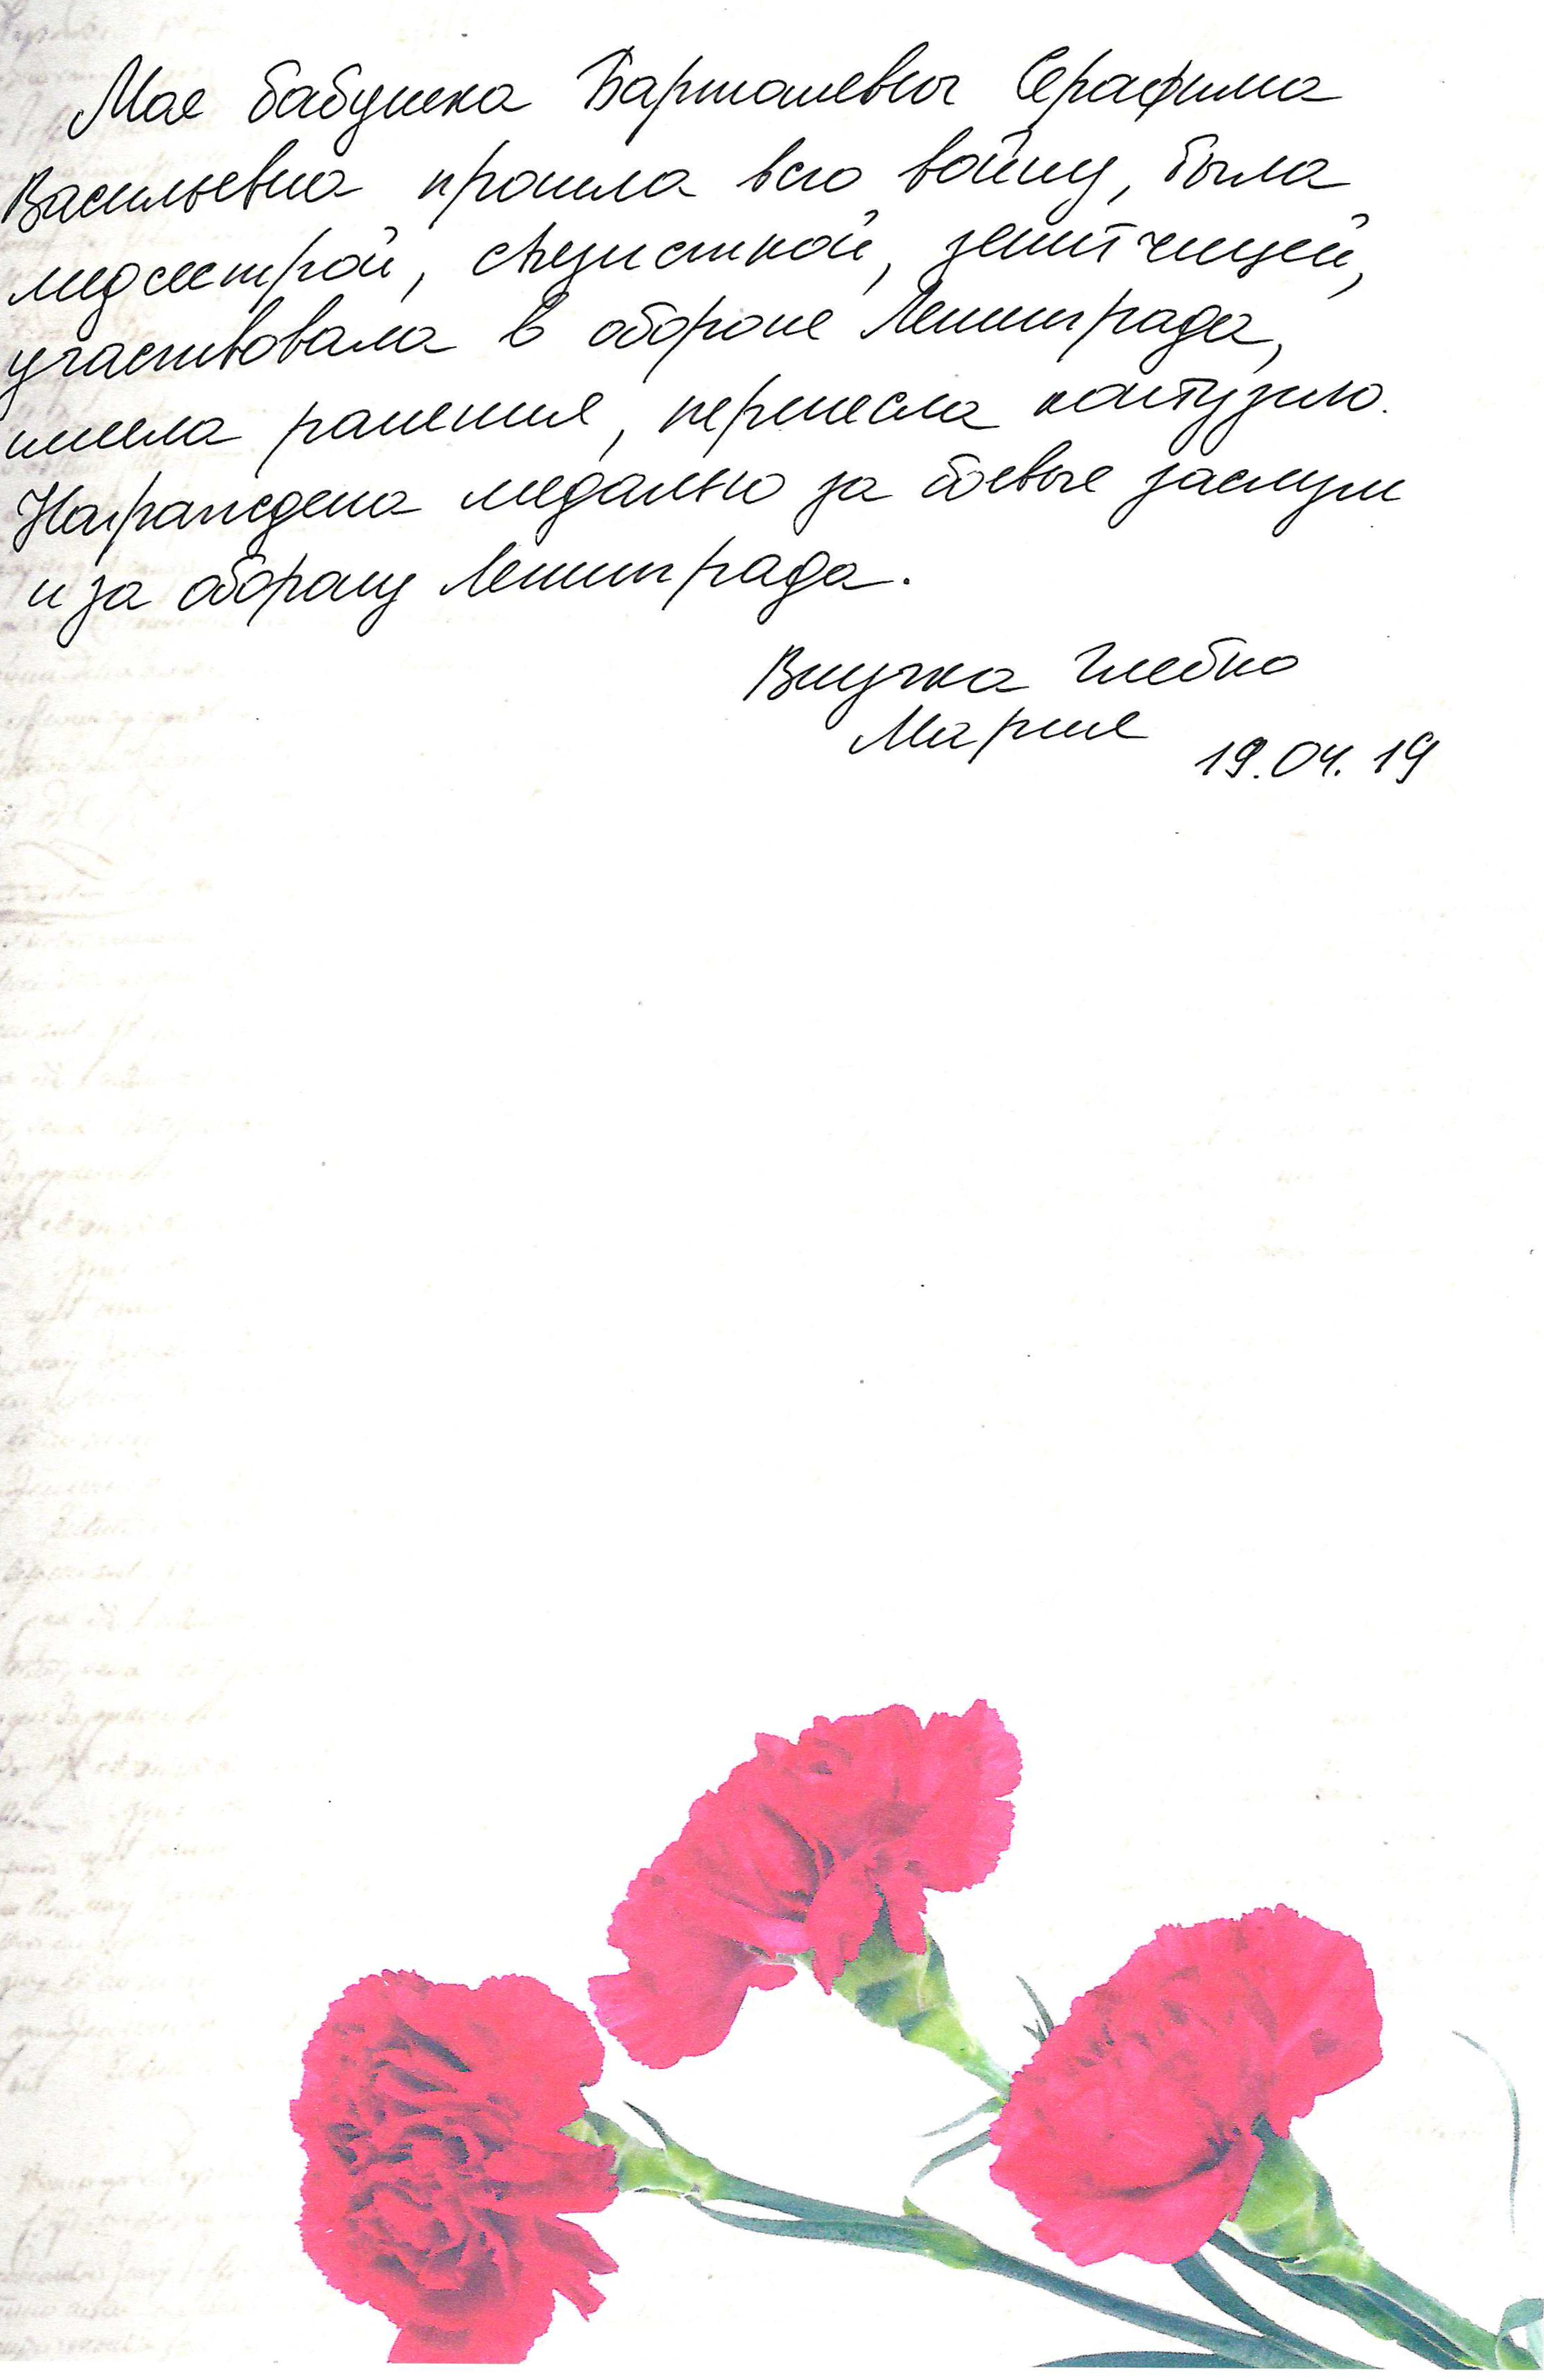 Моя бабушка Барташевич Серафима
Васильевна прошла всю войну, была
медсестрой, связисткой, зенитчицей,
участвовала в обороне Ленинграда,
имела ранения, перенесла контузию.
Награждена медалью за боевые заслуги
и за оборону Ленинграда.
Внучка Глебко
Мария
19.04.19